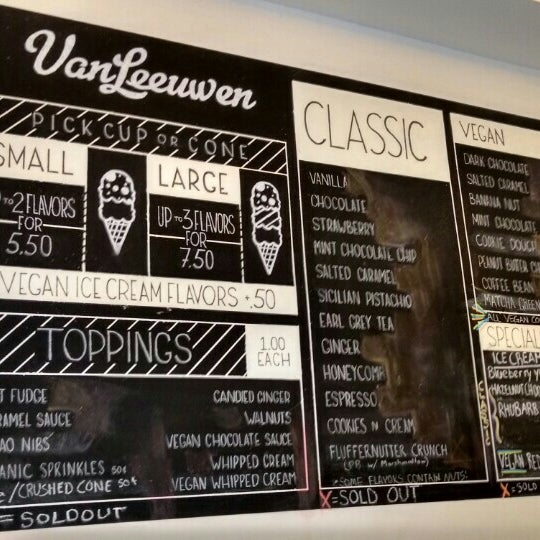 VanLeeuwen
PICK CUP OR CONE
SMALL
TO 2 FLAVORS
FOR
5.50
LARGE
UP TO 3 FLAVORS
FOR
7.50
VEGAN ICE CREAM FLAVORS +.50
TOPPINGS
1.00
EACH
T FUDGE
RAMEL SAUCE
AO NIBS
ANIC SPRINKLES 50¢
/CRUSHED CONE 50¢
CANDIED GINGER
WALNUTS
VEGAN CHOCOLATE SAUCE
WHIPPED CREAM
VEGAN WHIPPED CREAM
= SOLDOUT
CLASSIC
VANILLA
CHOCOLATE
STRAWBERRY
MINT CHOCOLATE CHIP
SALTED CARAMEL
SICILIAN PISTACHIO
EARL GREY TEA
GINGER
HONEYCOMB
ESPRESSO
COOKIES N CREAM
FLUFFERNUTTER CRUNCH
(PB w/ Marshmallow)
*SOME FLAVORS CONTAIN NUTS*
X=SOLD OUT
VEGAN
DARK CHOCOLATE
SALTED CARAMEL
BANANA NUT
MINT CHOCOLATE
COOKIE DOUGH
PEANUT BUTTER CH
COFFEE BEAN
MATCHA GREEN
ALL VEGAN CO
SPECIAL
ICE CREAM
Blueberry Y
HAZELNUT CHO
RHUBARB
VEGAN RE
X=SOLD